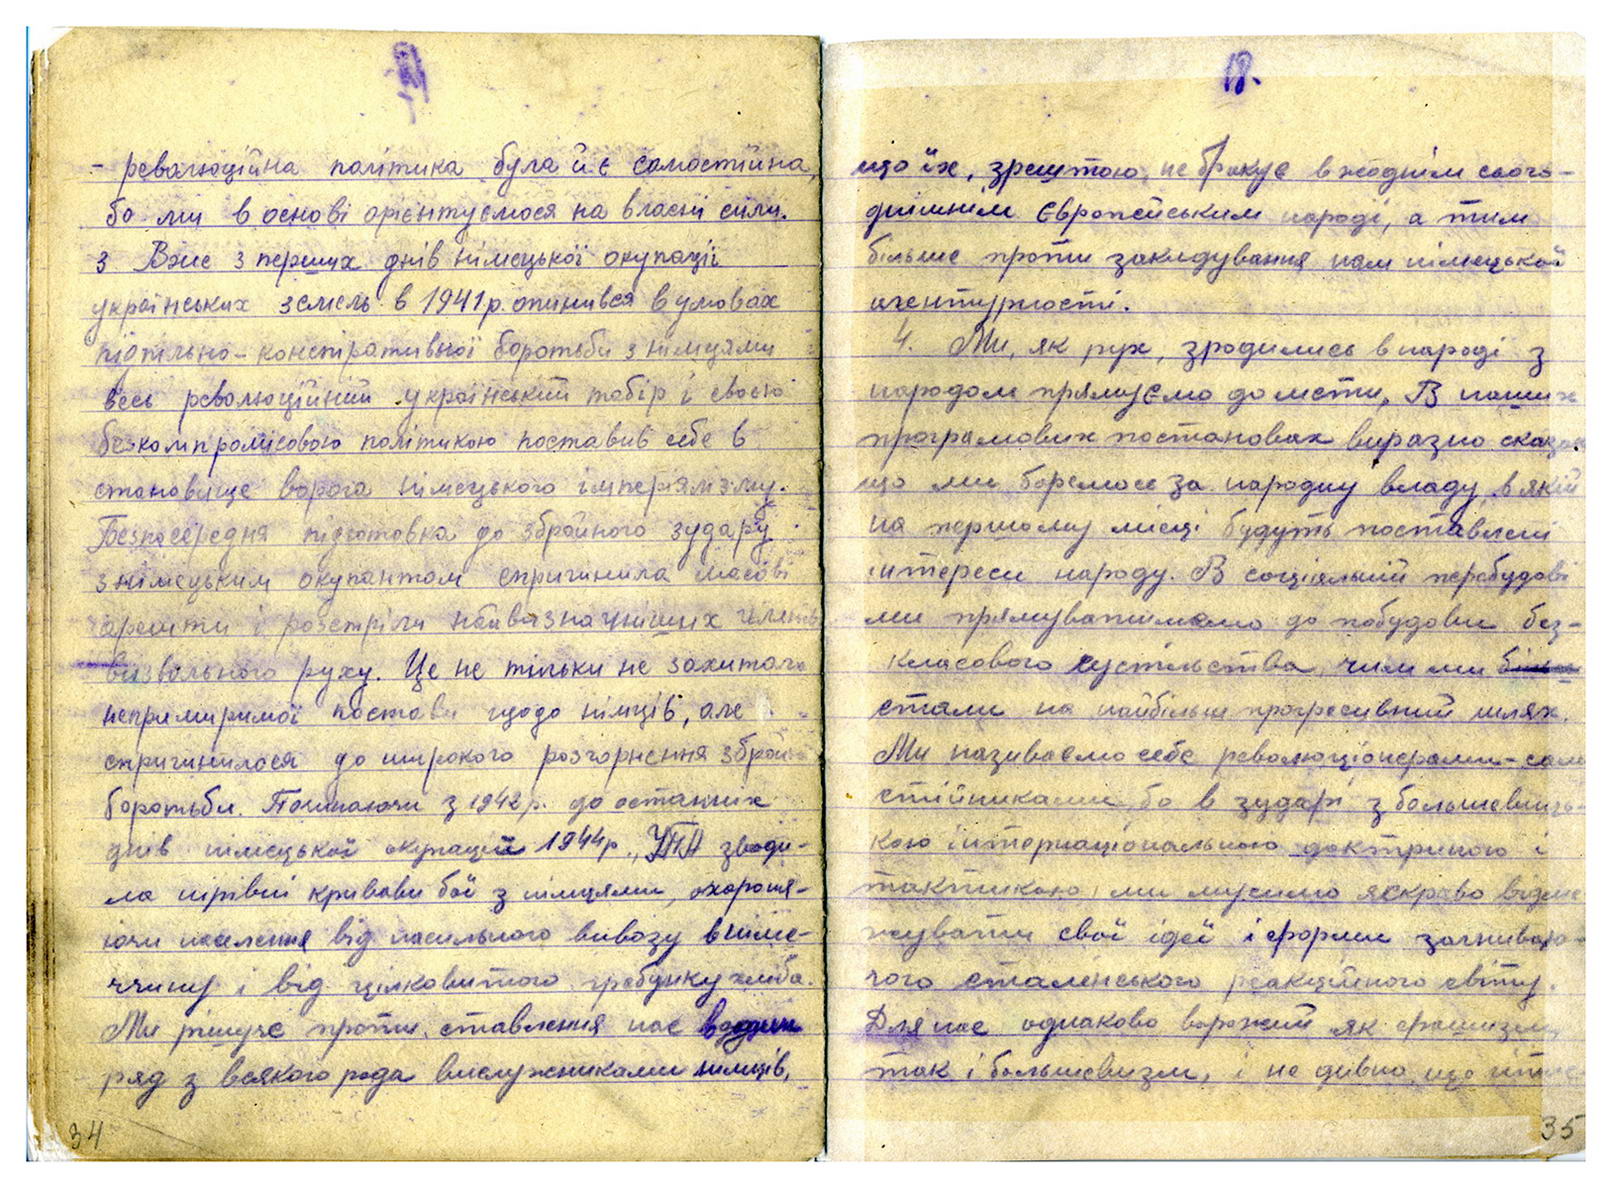 - революційна політика була й є самостійна,
бо ми в основі орієнтуємося на власні сили.
3. Вже з перших днів німецької окупації
українських земель в 1941 р. опинився в умовах
підпільно-конспіративної боротьби з німцями
весь революційний український табір і своєю
безкомпромісовою політикою поставив себе в
становище ворога німецького імперіялізму.
Безпосередня підготовка до збройного зудару
з німецьким окупантом спричинила масові
арешти і розстріли найвизначніших членів
визвольного руху. Це не тільки не захитало
непримиримої постави щодо німців, але
спричинилося до широкого розгорнення збройної
боротьби. Починаючи з 1942 р. до останніх
днів німецької окупації 1944 р., УПА зводи-
ла нерівні криваві бої з німцями, охороня-
ючи населення від насильного вивозу в Німе-
ччину і від цілковитого грабунку хліба.
Ми рішуче проти ставлення нас в один
ряд з всякого рода вислужниками німців,
34
18.
що їх, зрештою, не бракує в жоднім сього-
днішнім Європейським народі, а тим
більше проти закидування нам німецької
агентурності.
4. Ми, як рух, зродились в народі з
народом прямуємо до мети. В наших
програмових постановах виразно сказано
що ми боремось за народну владу, в якій
на першому місці будуть поставлені
інтереси народу. В соціяльній перебудові
ми прямуватимемо до побудови без-
класового суспільства, чим ми
стали на найбільш прогресивний шлях.
Ми називаємо себе революціонерами-само
стійниками, бо в зударі з большевиць-
кою інтернаціональною доктриною і
тактикою, ми мусимо яскраво відме
жувати свої ідеї і форми загниваю-
чого сталінського реакційного світу.
Для нас однаково ворожий як фашизм,
так і большевизм, і не дивно, що
35